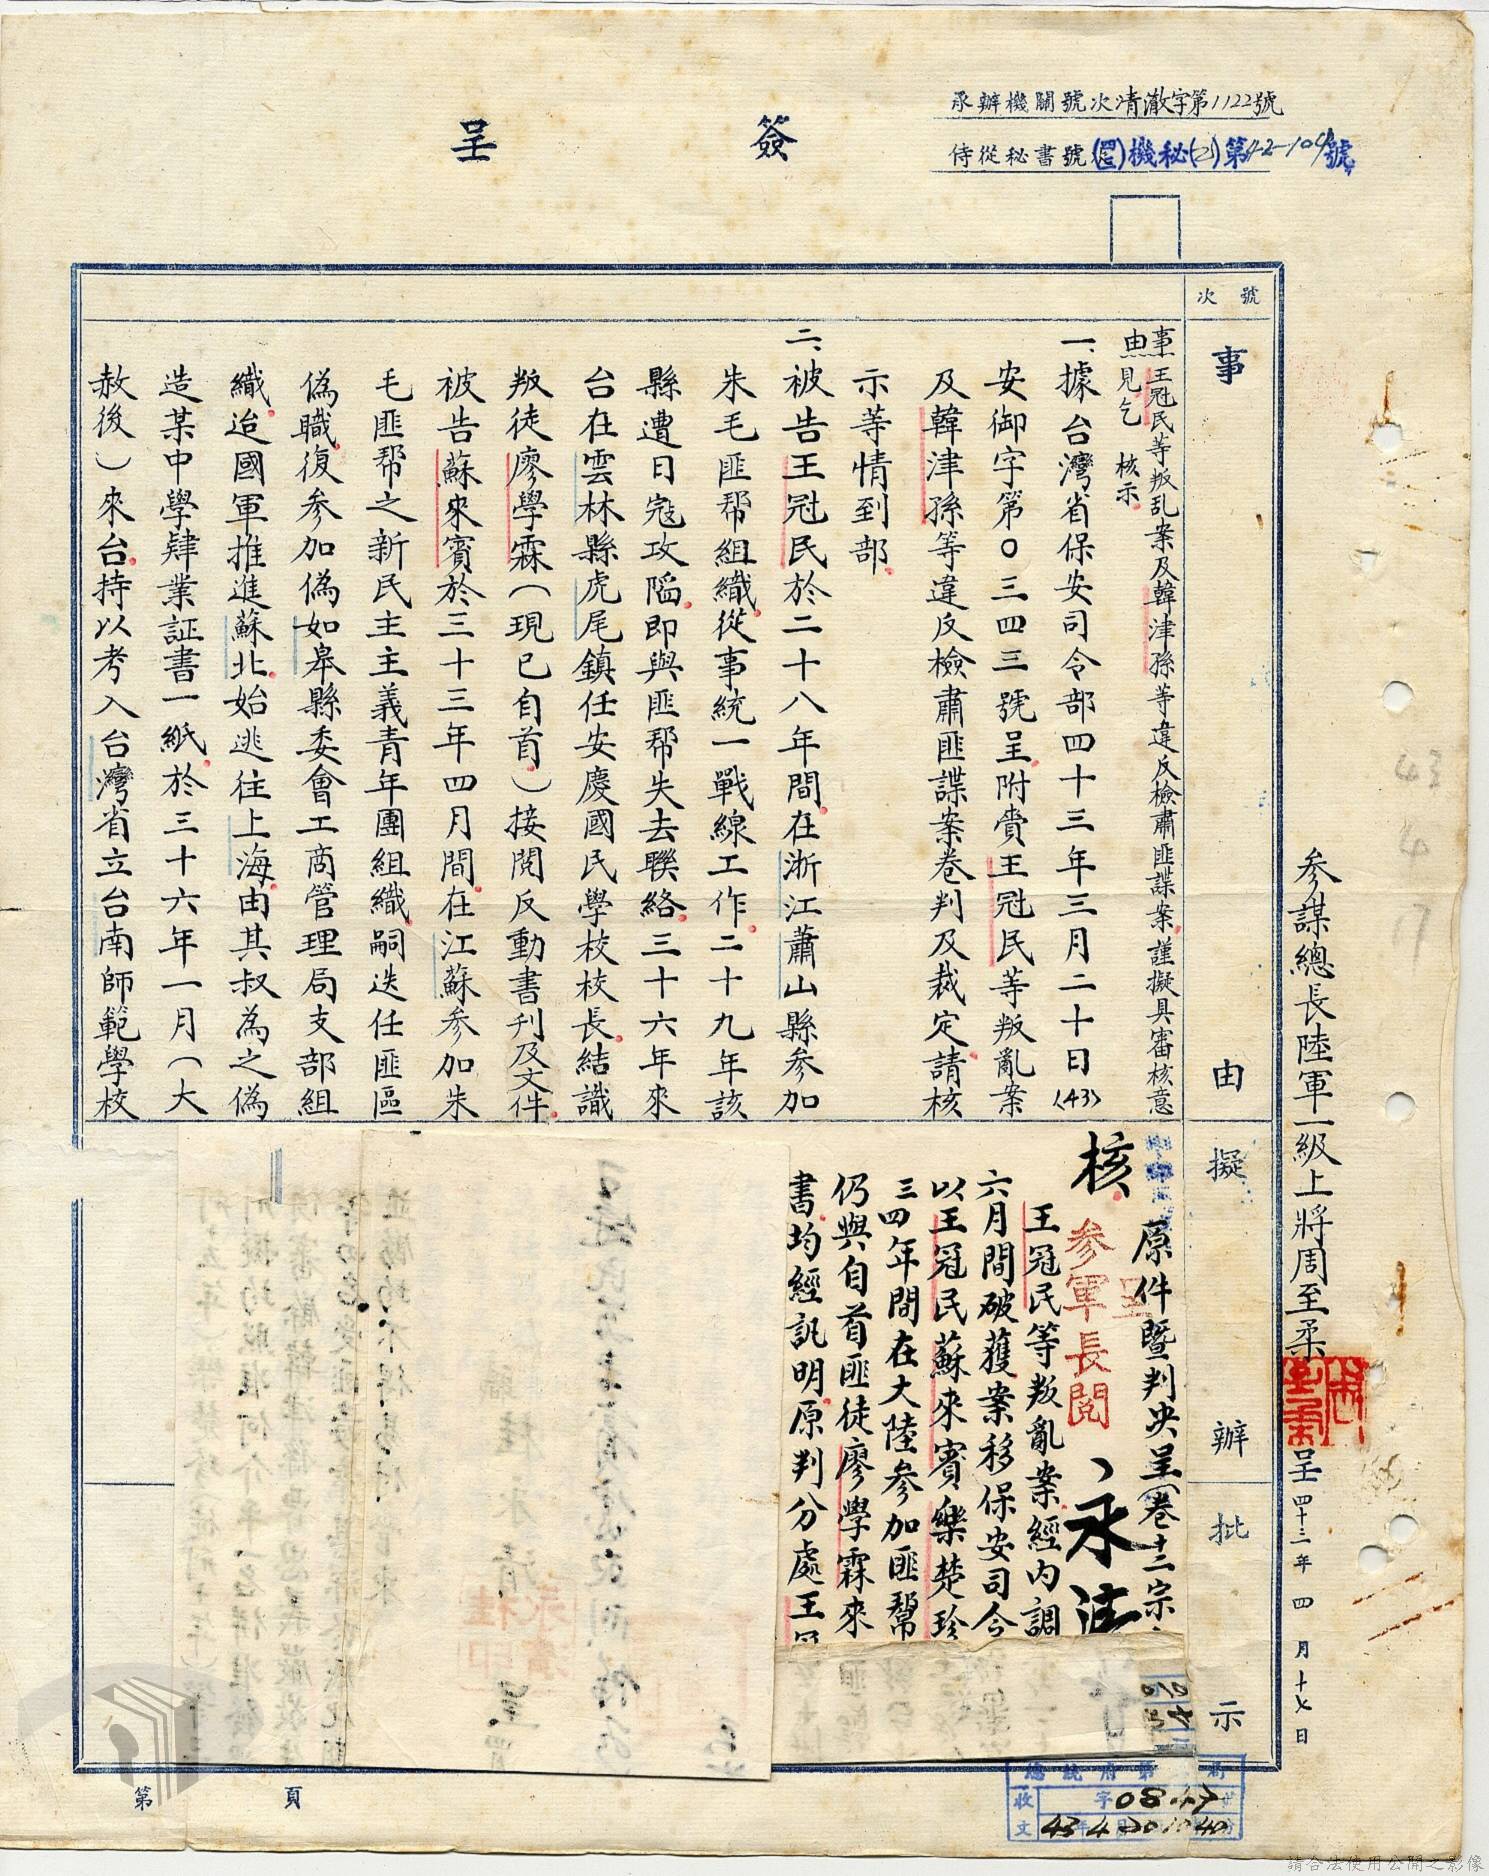 承辦機關號次清澈字第1122號
侍從秘書號次機秘(乙)第42-104號
簽呈
號次
事由
擬辦
批示
參謀總長陸軍一級上將周至柔呈四十三年四月十七日
事由
王冠民等叛乱案及韓津孫等違反檢肅匪諜案謹擬具審核意
見乞核示
一、據台灣省保安司令部四十三年三月二十日(43)
安御字第0三四三號呈附賫王冠民等叛亂案
及韓津孫等違反檢肅匪諜案卷判及裁定請核
示等情到部
二、被告王冠民於二十八年間在浙江蕭山縣參加
朱毛匪帮組織從事統一戰線工作二十九年該
縣遭日寇攻陷即與匪帮失去聯絡三十六年來
台在雲林縣虎尾鎮任安慶國民學校校長結識
叛徒廖學霖(現已自首)接閱反動書刊及文件
被告蘇來賓於三十三年四月間在江蘇參加朱
毛匪帮之新民主主義青年團組織嗣迭任匪區
偽職復參加偽如皋縣委會工商管理局支部組
織迨國軍推進蘇北始逃往上海由其叔為之偽
造某中學肄業証書一紙於三十六年一月(大
赦後)來台持以考入台灣省立台南師範學校
原件暨判决呈(卷十二宗
核
呈
參軍長閱
王冠民等叛亂案經內調
六月間破獲案移保安司令
以王冠民蘇來賓樂楚珍
三四年間在大陸參加匪幫
仍與自首匪徒廖學霖來
書均經訊明原判分處王
總統府第局
收文
字0847
43 4 20 10 40
第頁
請合法使用公開之影像